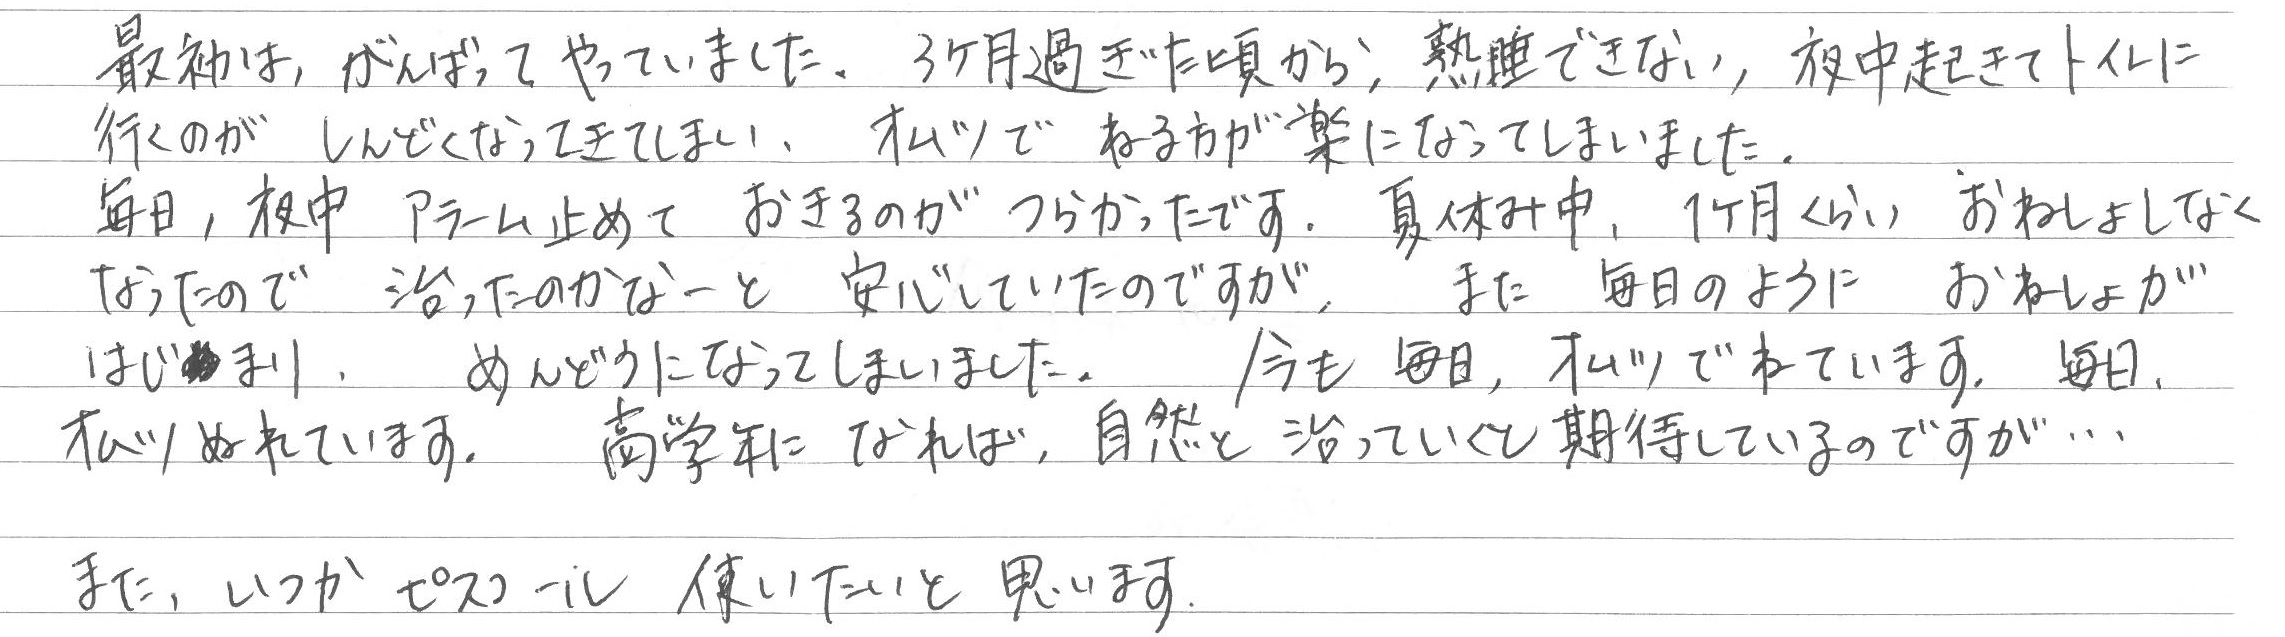 最初は，がんばってやっていました．3ケ月過ぎた頃から，熟睡できない，夜中起きてトイレに
行くのが しんどくなってきてしまい． オムツで ねる方が楽になってしまいました．
毎日，夜中 アラーム止めて おきるのが つらかったです．夏休み中，1ケ月くらい おねしょしなく
なったので 治ったのかなーと 安心していたのですが， また 毎日のように おねしょが
はじまり， めんどうになってしまいました． 今も 毎日，オムツでねています．毎日，
オムツぬれています． 高学年に なれば，自然と 治っていくと期待しているのですが…
また，いつか ピスコール 使いたいと 思います．